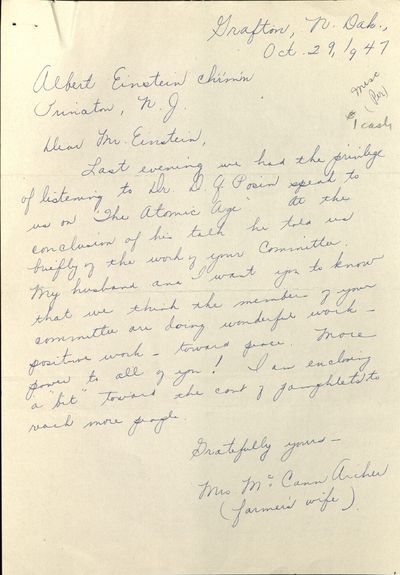 Grafton, N. Dak.,
Oct. 29, 1947
Albert Einstein ch'm'n
Princeton, N. J.
misc
(Por)
$1 cash
Dear Mr. Einstein,
Last evening we had the privilege
of listening to Dr. D. Q Posin speak to
us on "The Atomic Age" At the
conclusion of his talk he told us
briefly of the work of your Committee.
My husband and I want you to know
that we think the members of your
committee are doing wonderful work -
positive work - toward peace. More
power to all of you! I am enclosing
a "bit" toward the cost of pamphlets to
reach more people.
Gratefully yours -
Mrs. Mc Cann Archer
(farmer's wife).